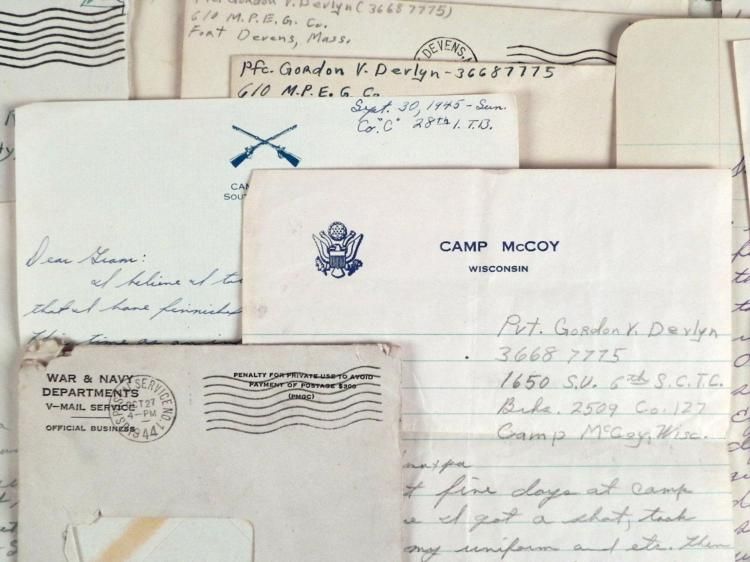 Pfc. Gordon V. Devlyn (36687775)
610 M.P.E.G. Co.
Fort Devens, Mass.
DEVENS,
Pfc. Gordon V. Devlyn - 36687775
610 M.P.E.G. Co.
Sept. 30, 1945 - Sun.
Co. "C" 28th I.T.B.
CAM
SOUT
Dear Gram:
I believe I to
that I have finnished
this time as
CAMP McCOY
WISCONSIN
Pvt. Gordon V. Devlyn
3668 7775
1650 S.U. 6th S.C.T.C.
Brks. 2509 Co. 127
Camp McCoy, Wisc.
WAR & NAVY
DEPARTMENTS
V-MAIL SERVICE
OFFICIAL BUSINESS
U.S. POSTAL SERVICE NO. 1
OCT 27
4-PM
1944
PENALTY FOR PRIVATE USE TO AVOID
PAYMENT OF POSTAGE $300
(PMGC)
ndpa
t five days at camp
e I got a shot, took
my uniform and etc. then